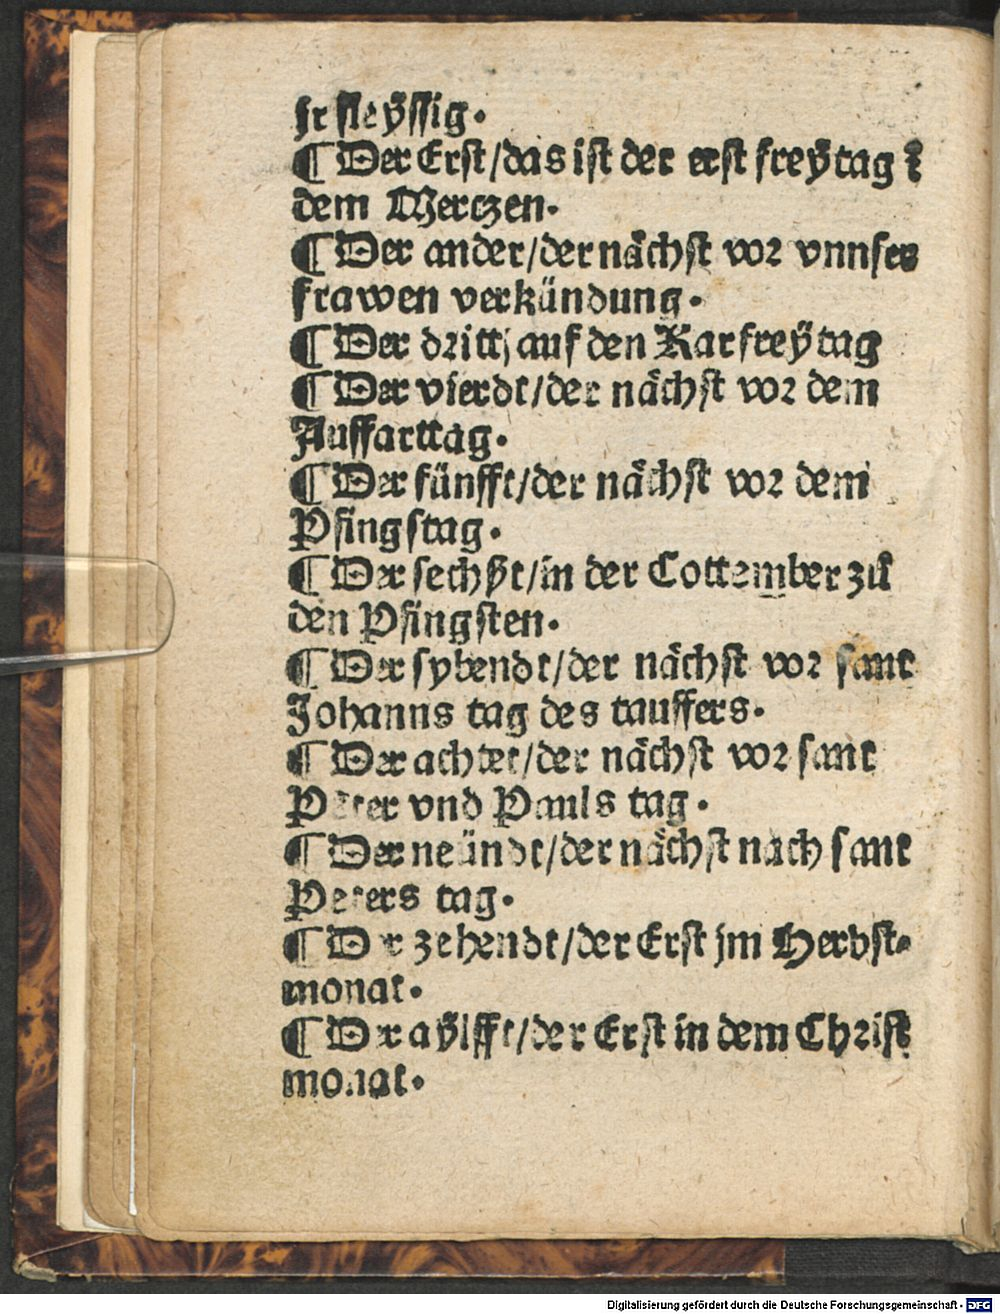 jr fleyssig.
¶ Der Erst/das ist der erst freÿtag ī
dem Mertzen.
¶ Der ander/der nächst vor vnnser
frawen verkündung.
¶ Der dritt/auf den Karfreÿtag
¶ Der vierdt/der nächst vor dem
Auffarttag.
¶ Der fünfft/der nächst vor dem
Pfingstag.
¶ Der sechßt/in der Cottember zů
den Pfingsten.
¶ Der sybendt/der nächst vor sant
Johanns tag des tauffers.
¶ Der achtet/der nächst vor sant
Peter vnd Pauls tag.
¶ Der neündt/der nächst nach sant
Peters tag.
¶ Der zehendt/der Erst jm Herbst-
monat.
¶ Der aÿlfft/der Erst in dem Christ
monat.
Digitalisierung gefördert durch die Deutsche Forschungsgemeinschaft - DFG